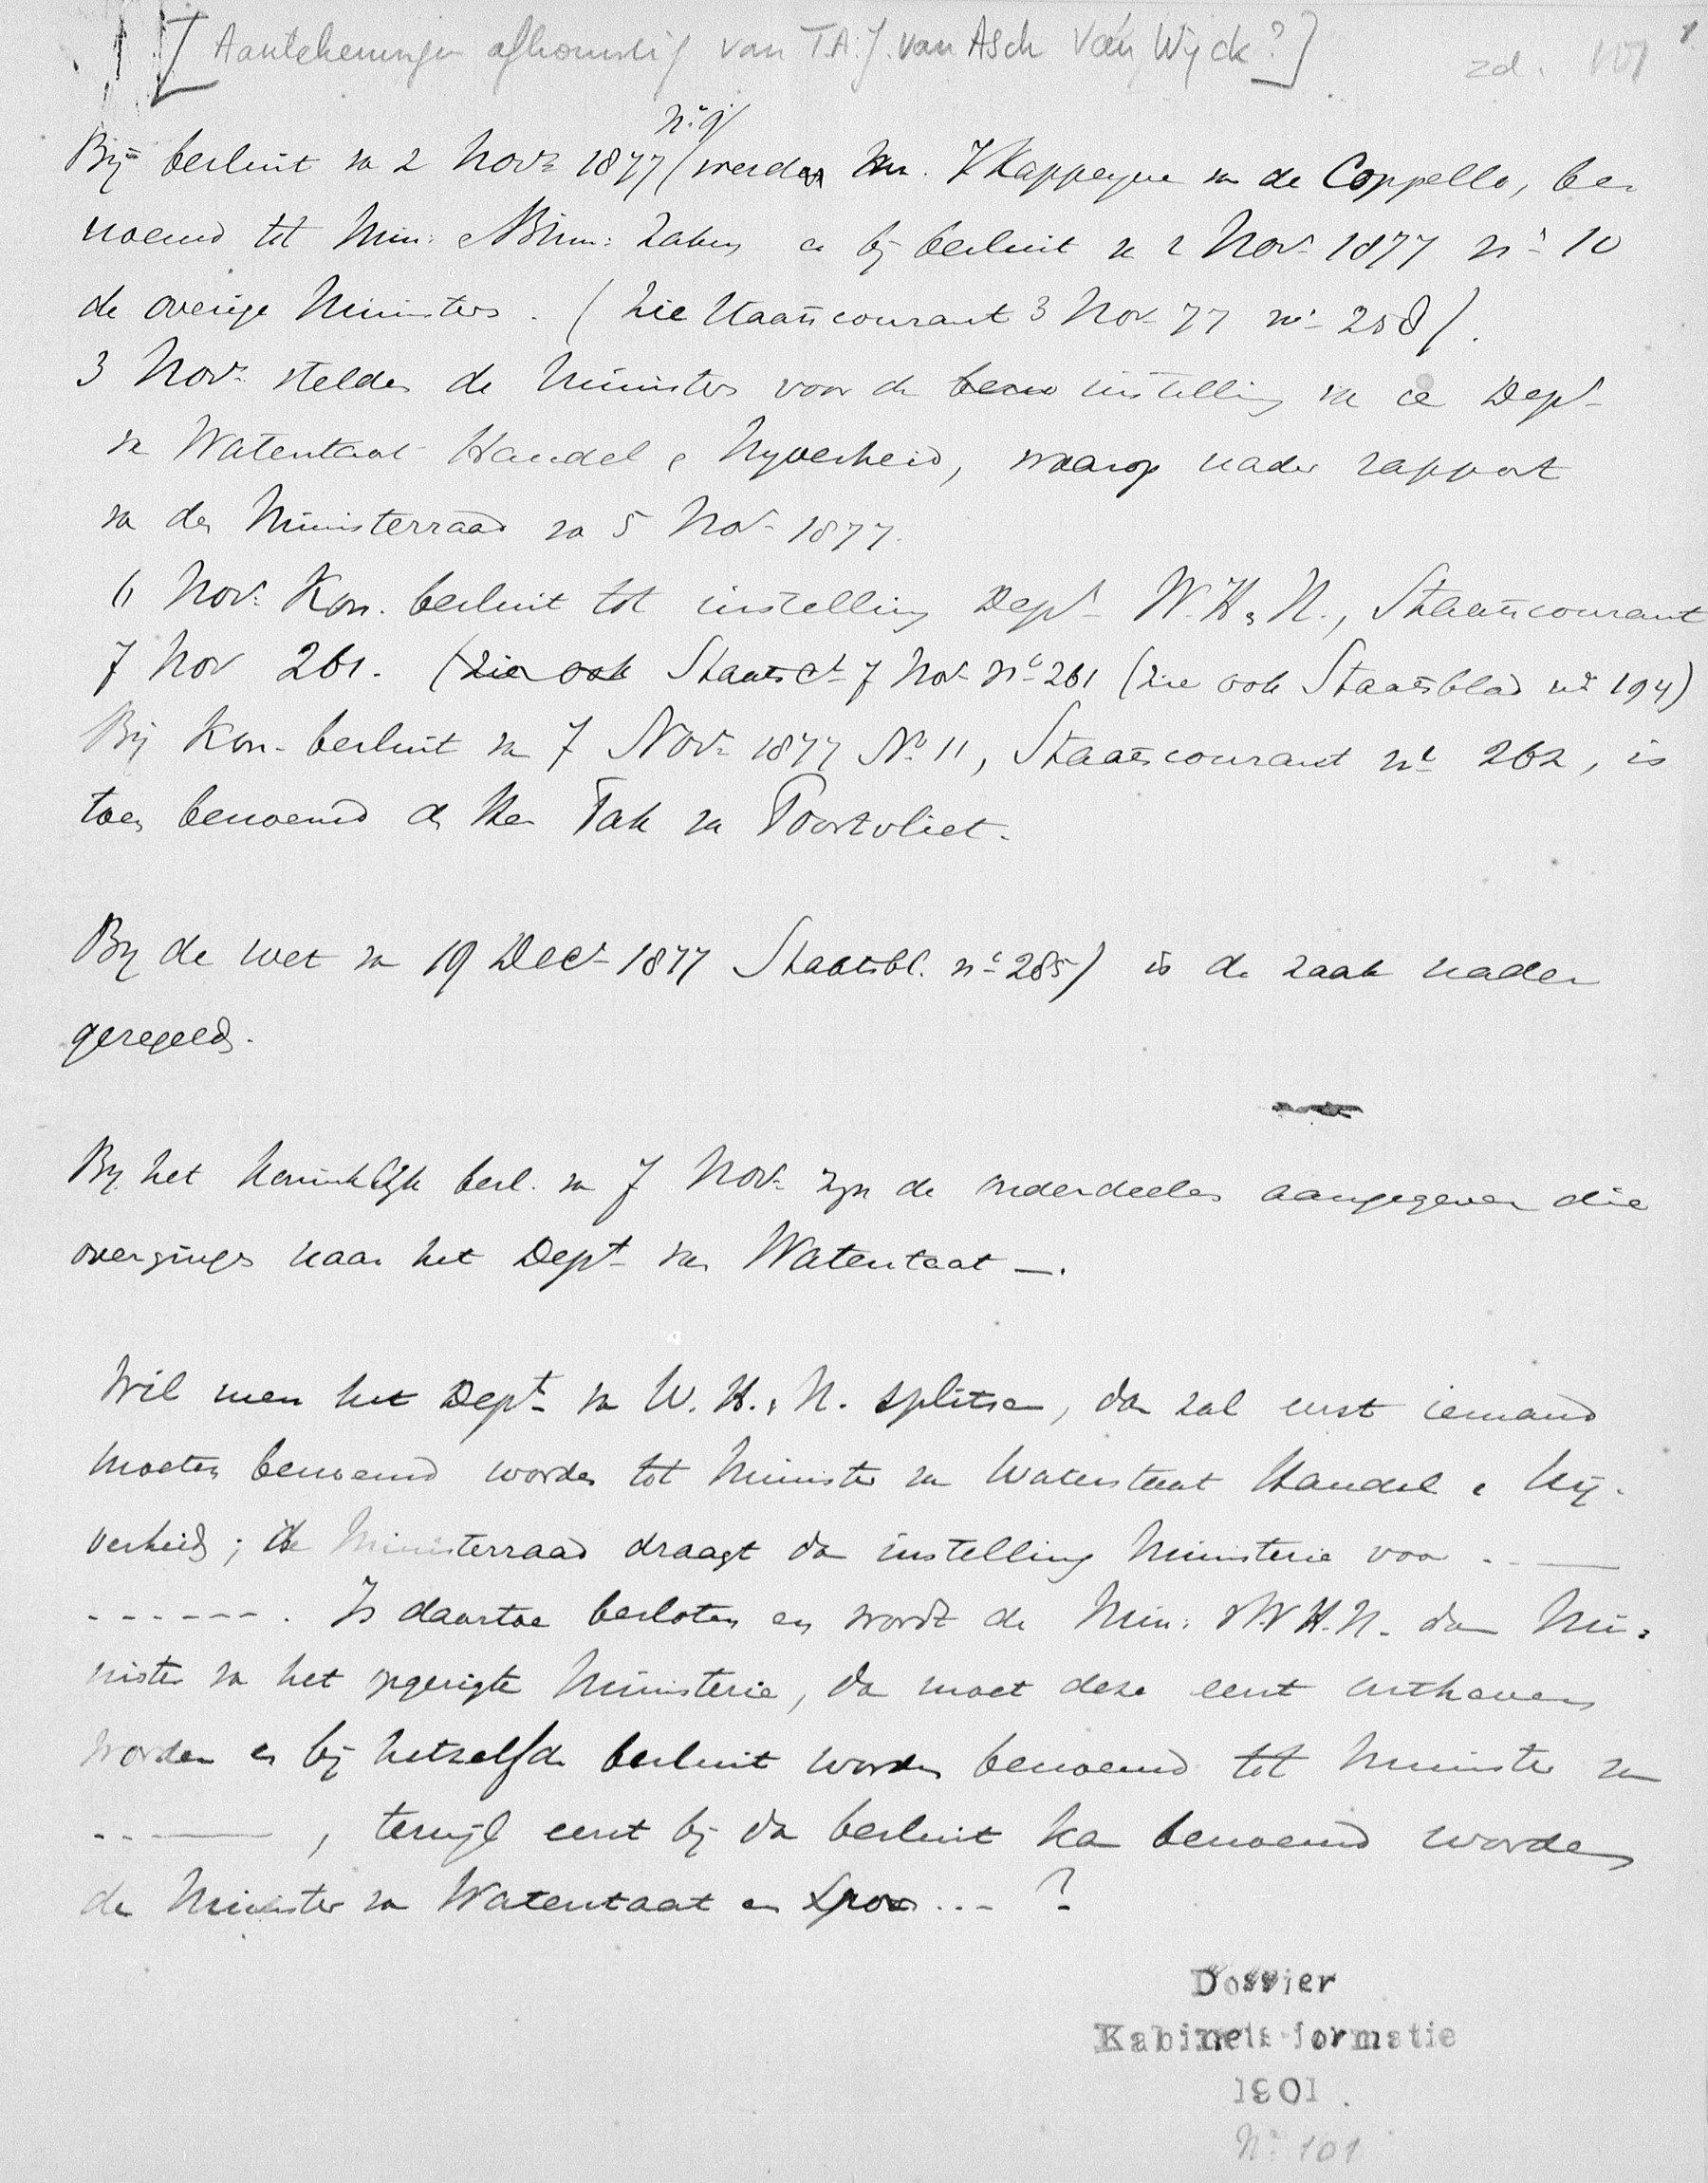 [Aantekeningen afkomstig van T.A.J. van Asch van Wyck?] zd. 101 1
nº 9/
Bij besluit va 2 Novr 1877 / werden Mr. J Kappeyne va de Coppello, be-
noemd tot Min: v Binn: Zaken en bij besluit va 2 Novr 1877 nº 10
de overige Ministers. (Zie Staatscourant 3 Nov 77 nº 258).
3 Novr stelden de Ministers voor de instelling va ee Dept
va Waterstaat Handel & Nyverheid, waarop nader rapport
va den Ministerraad va 5 Novr 1877.
6 Novr Kon. besluit tot instelling Dept W.H & N., Staatscourant
7 Nov 261. (Zie ook Staatsct 7 Novr Nº 261 (Zie ook Staatsblad nº 194)
Bij Kon. besluit va 7 Novr 1877 Nº 11, Staatscourant nº 262, is
toen benoemd de Heer Tak va Poortvliet.
By de wet va 19 Decr 1877 Staatsbl. nº 285) is de zaak nader
geregeld.
By het Koninklijk besl. va 7 Novr zijn de onderdeelen aangegeven die
overgingen naar het Dept van Waterstaat —.
Wil men het Dept va W. H. & N. splitsen, dan zal eerst iemand
moeten benoemd worden tot Minister va Waterstaat Handel & Nij-
verheid; de Ministerraad draagt dan instelling Ministerie voor . - —
- - - - - - . Is daartoe besloten en wordt de Min: v W.H.N. dan Mi-
nister va het opgerigte Ministerie, dan moet deze eerst ontheven
worden en bij hetzelfde besluit worden benoemd tot Minister va
- - ———, terwijl eerst bij da besluit kan benoemd worden
de Minister va Waterstaat en Spoor ... ?
Dossier
Kabinetsformatie
1901.
Nº 101